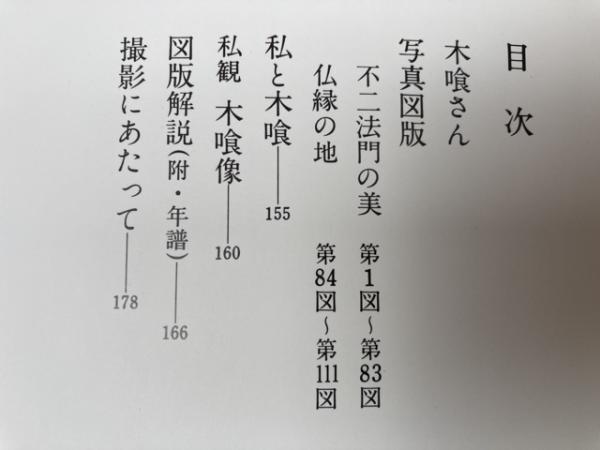 目次
木喰さん
写真図版
不二法門の美 第1図~第83図
仏縁の地 第84図~第111図
私と木喰——155
私観 木喰像——160
図版解説(附・年譜)——166
撮影にあたって——178